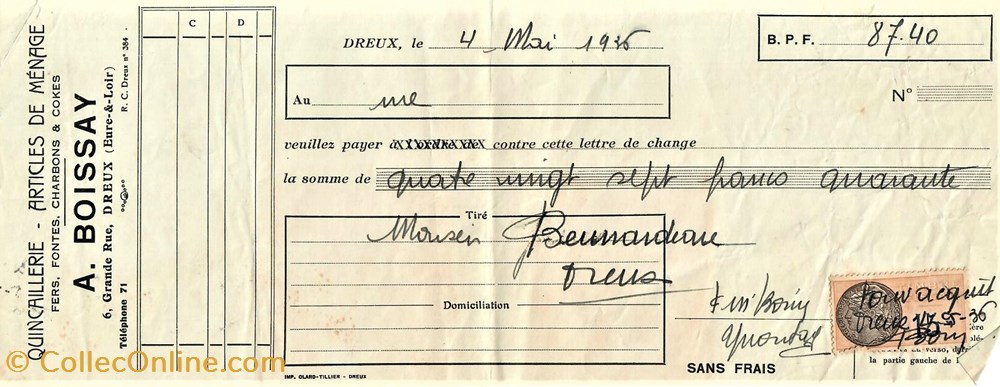 QUINCAILLERIE - ARTICLES DE MÉNAGE
FERS, FONTES, CHARBONS & COKES
A. BOISSAY
6, Grande Rue, DREUX (Eure-&-Loir)
Téléphone 71
R. C. Dreux n° 384
C D
DREUX, le 4 Mai 1936
B. P. F. 87.40
Au
N°
veuillez payer à contre cette lettre de change
la somme de quatre vingt sept francs quarante
Tiré
Dreux
Domiciliation
Pour acquit
Dreux
SANS FRAIS
la partie gauche de l
IMP. OLARD-TILLIER - DREUX
© CollecOnline.com